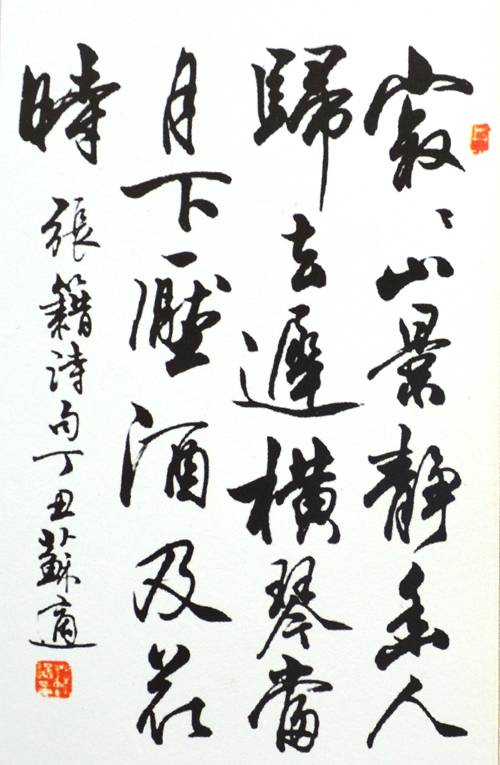 寂〻山景靜幽人
歸去遲橫琴當
月下壓酒及花
時
張籍诗句丁丑蘇適